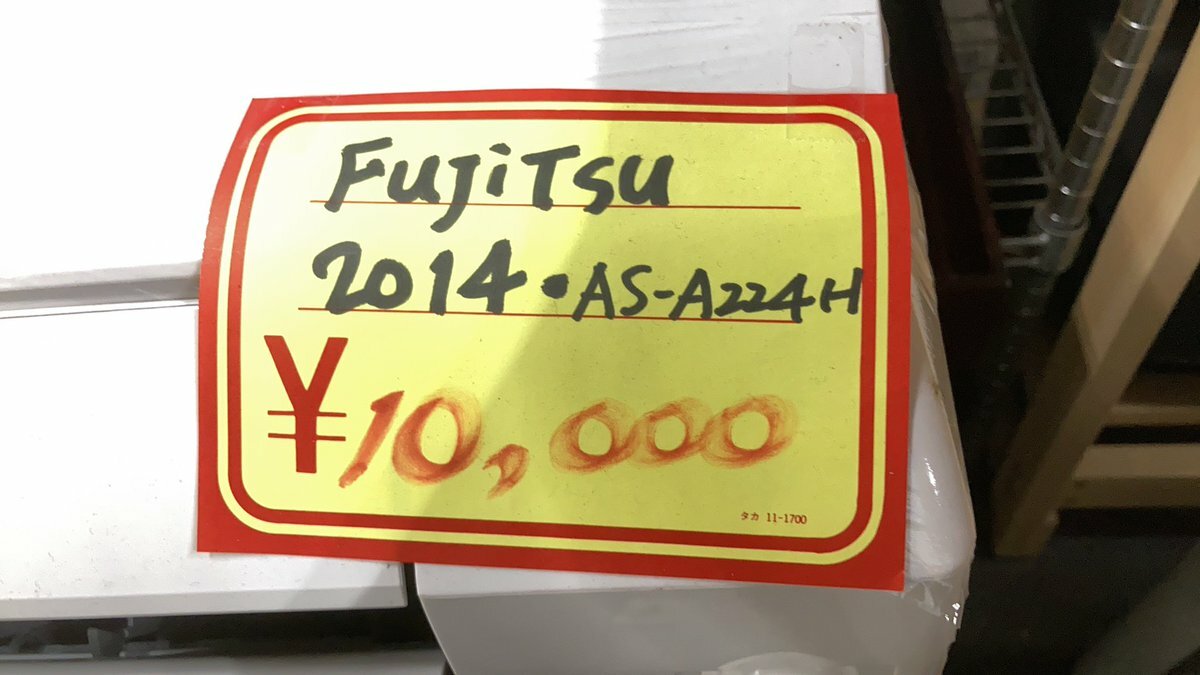 FUJiTSU
2014・AS-A224H
¥10,000
タカ 11-1700